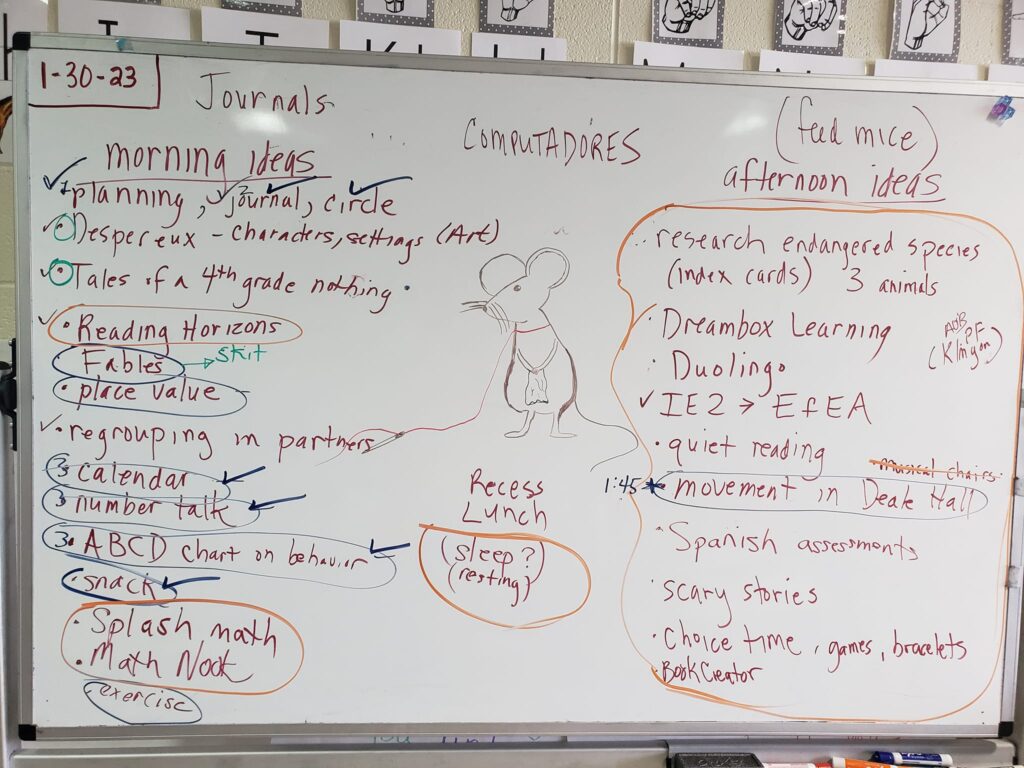 1-30-23
Journals
morning ideas
planning, journal, circle
Despereux - characters, settings (Art)
Tales of a 4th grade nothing
Reading Horizons
Fables → skit
place value
regrouping in partners
3 calendar
3 number talk
3. ABCD chart on behavior
snack
Splash math
Math Nook
exercise
COMPUTADORES
Recess
Lunch
(sleep?)
(resting)
(feed mice)
afternoon ideas
research endangered species
(index cards) 3 animals
Dreambox Learning
PF
(Klingon)
Duolingo
IE2 → EfEA
quiet reading
musical chairs
1:45 * movement in Deale Hall
Spanish assessments
scary stories
Choice time, games, bracelets
Book Creator